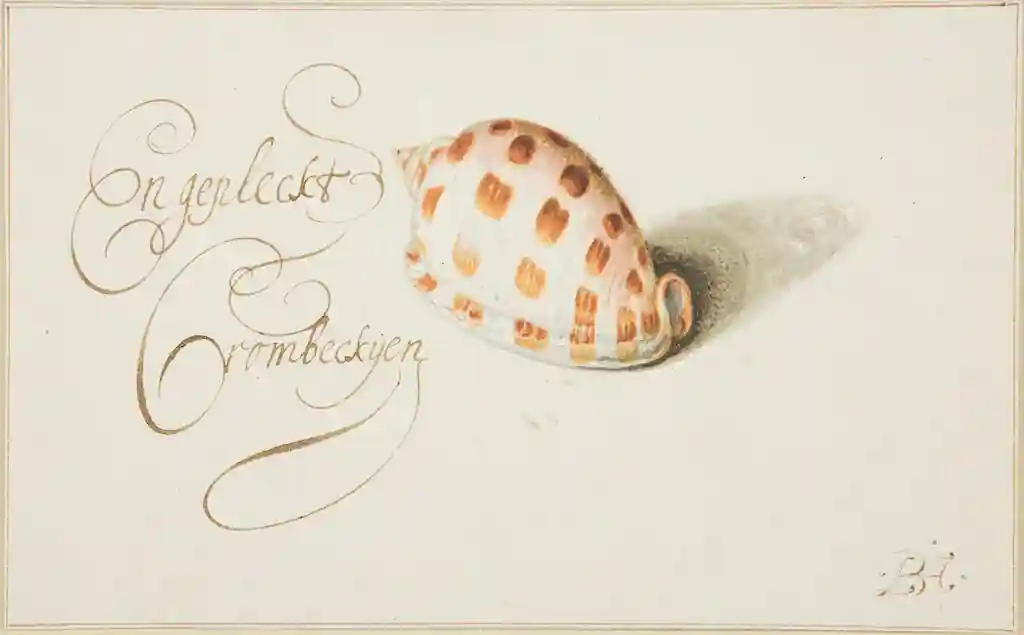 En geplecktt
Crombeckijen
.BA.